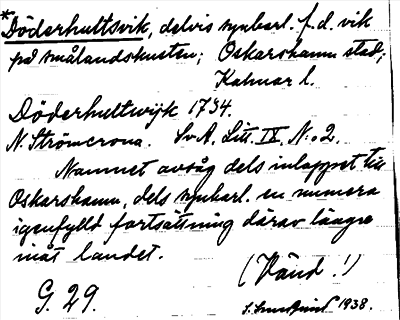 *Döderhultsvik, delvis synbarl. f.d. vik
på smålandskusten; Oskarshamn stad;
Kalmar l.
Döderhultwijk 1734.
N. Strömcrona. Sv. A. Litt. IX. N:o 2.
Namnet avsåg dels inloppet till
Oskarshamn, dels synbarl. en numera
igenfylld fortsättning därav längre
inåt landet.
(Vänd!)
G. 29.
1938.